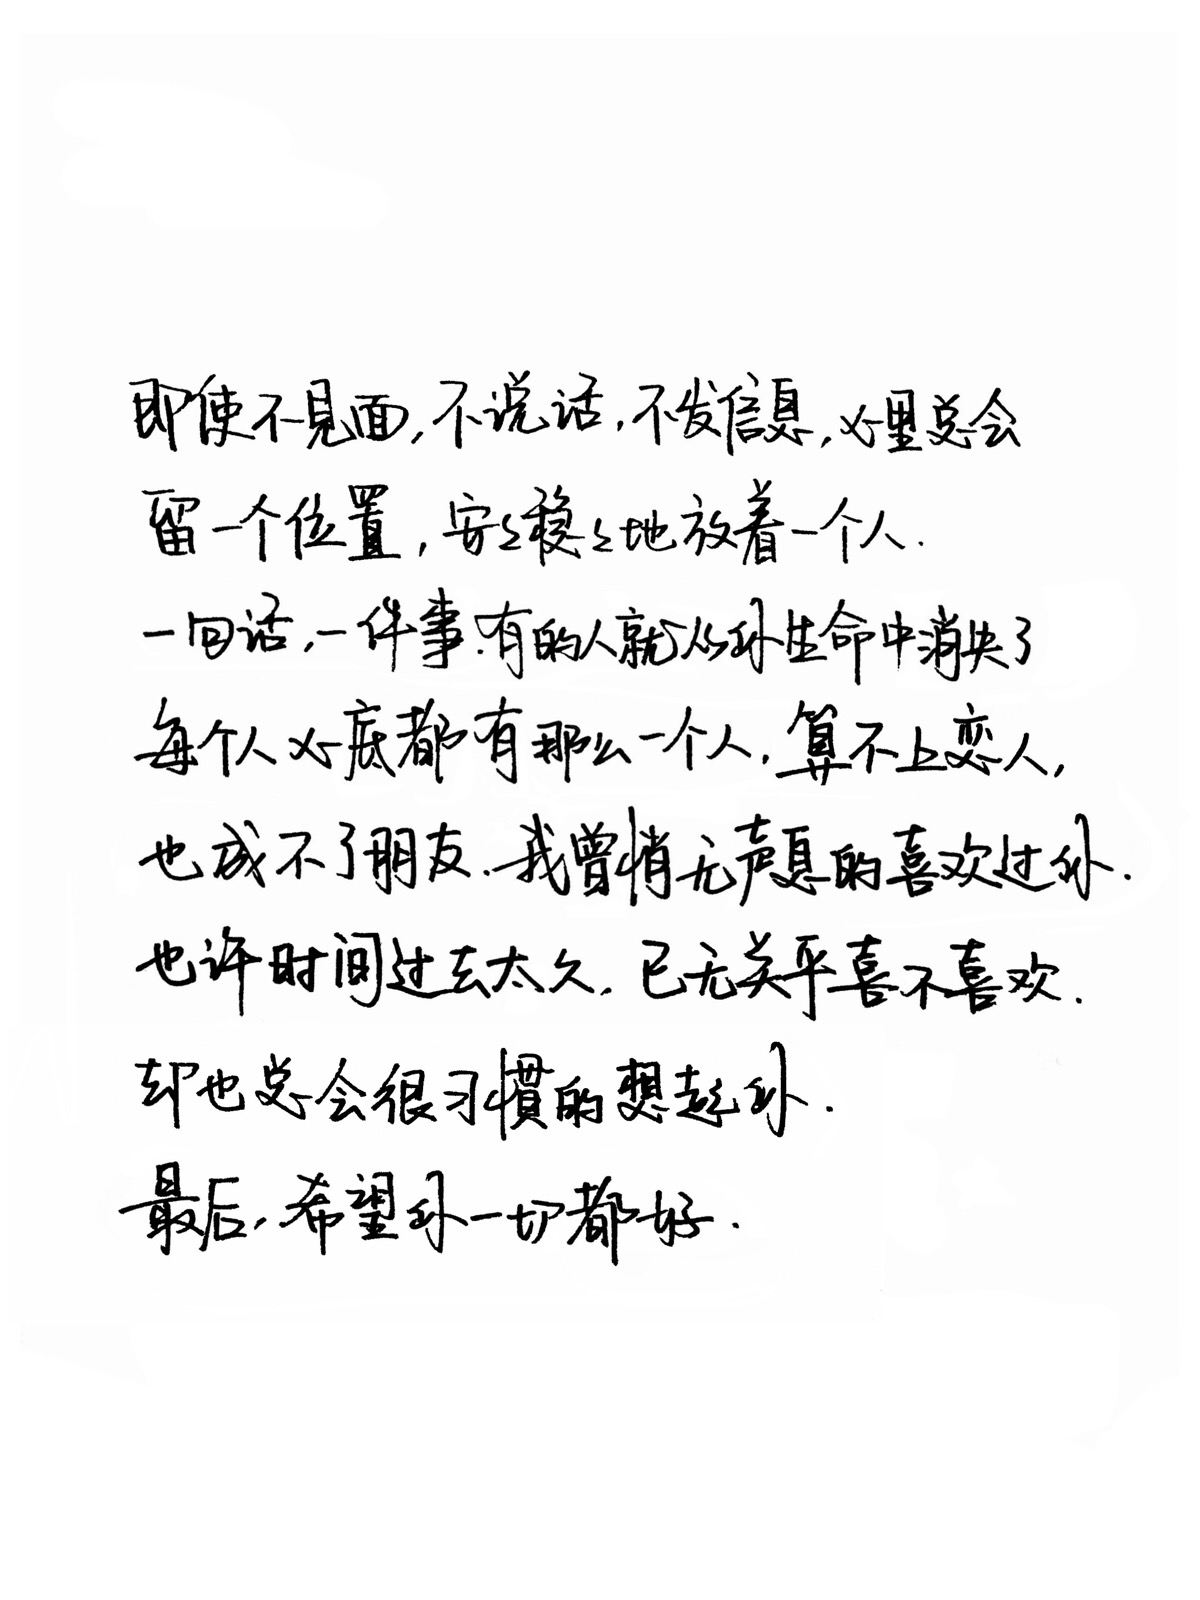 即使不见面,不说话,不发信息,心里总会
留一个位置,安安稳稳地放着一个人.
一句话,一件事.有的人就从你生命中消失了
每个人心底都有那么一个人,算不上恋人,
也成不了朋友.我曾悄无声息的喜欢过你.
也许时间过去太久,已无关乎喜不喜欢.
却也总会很习惯的想起你.
最后,希望你一切都好.